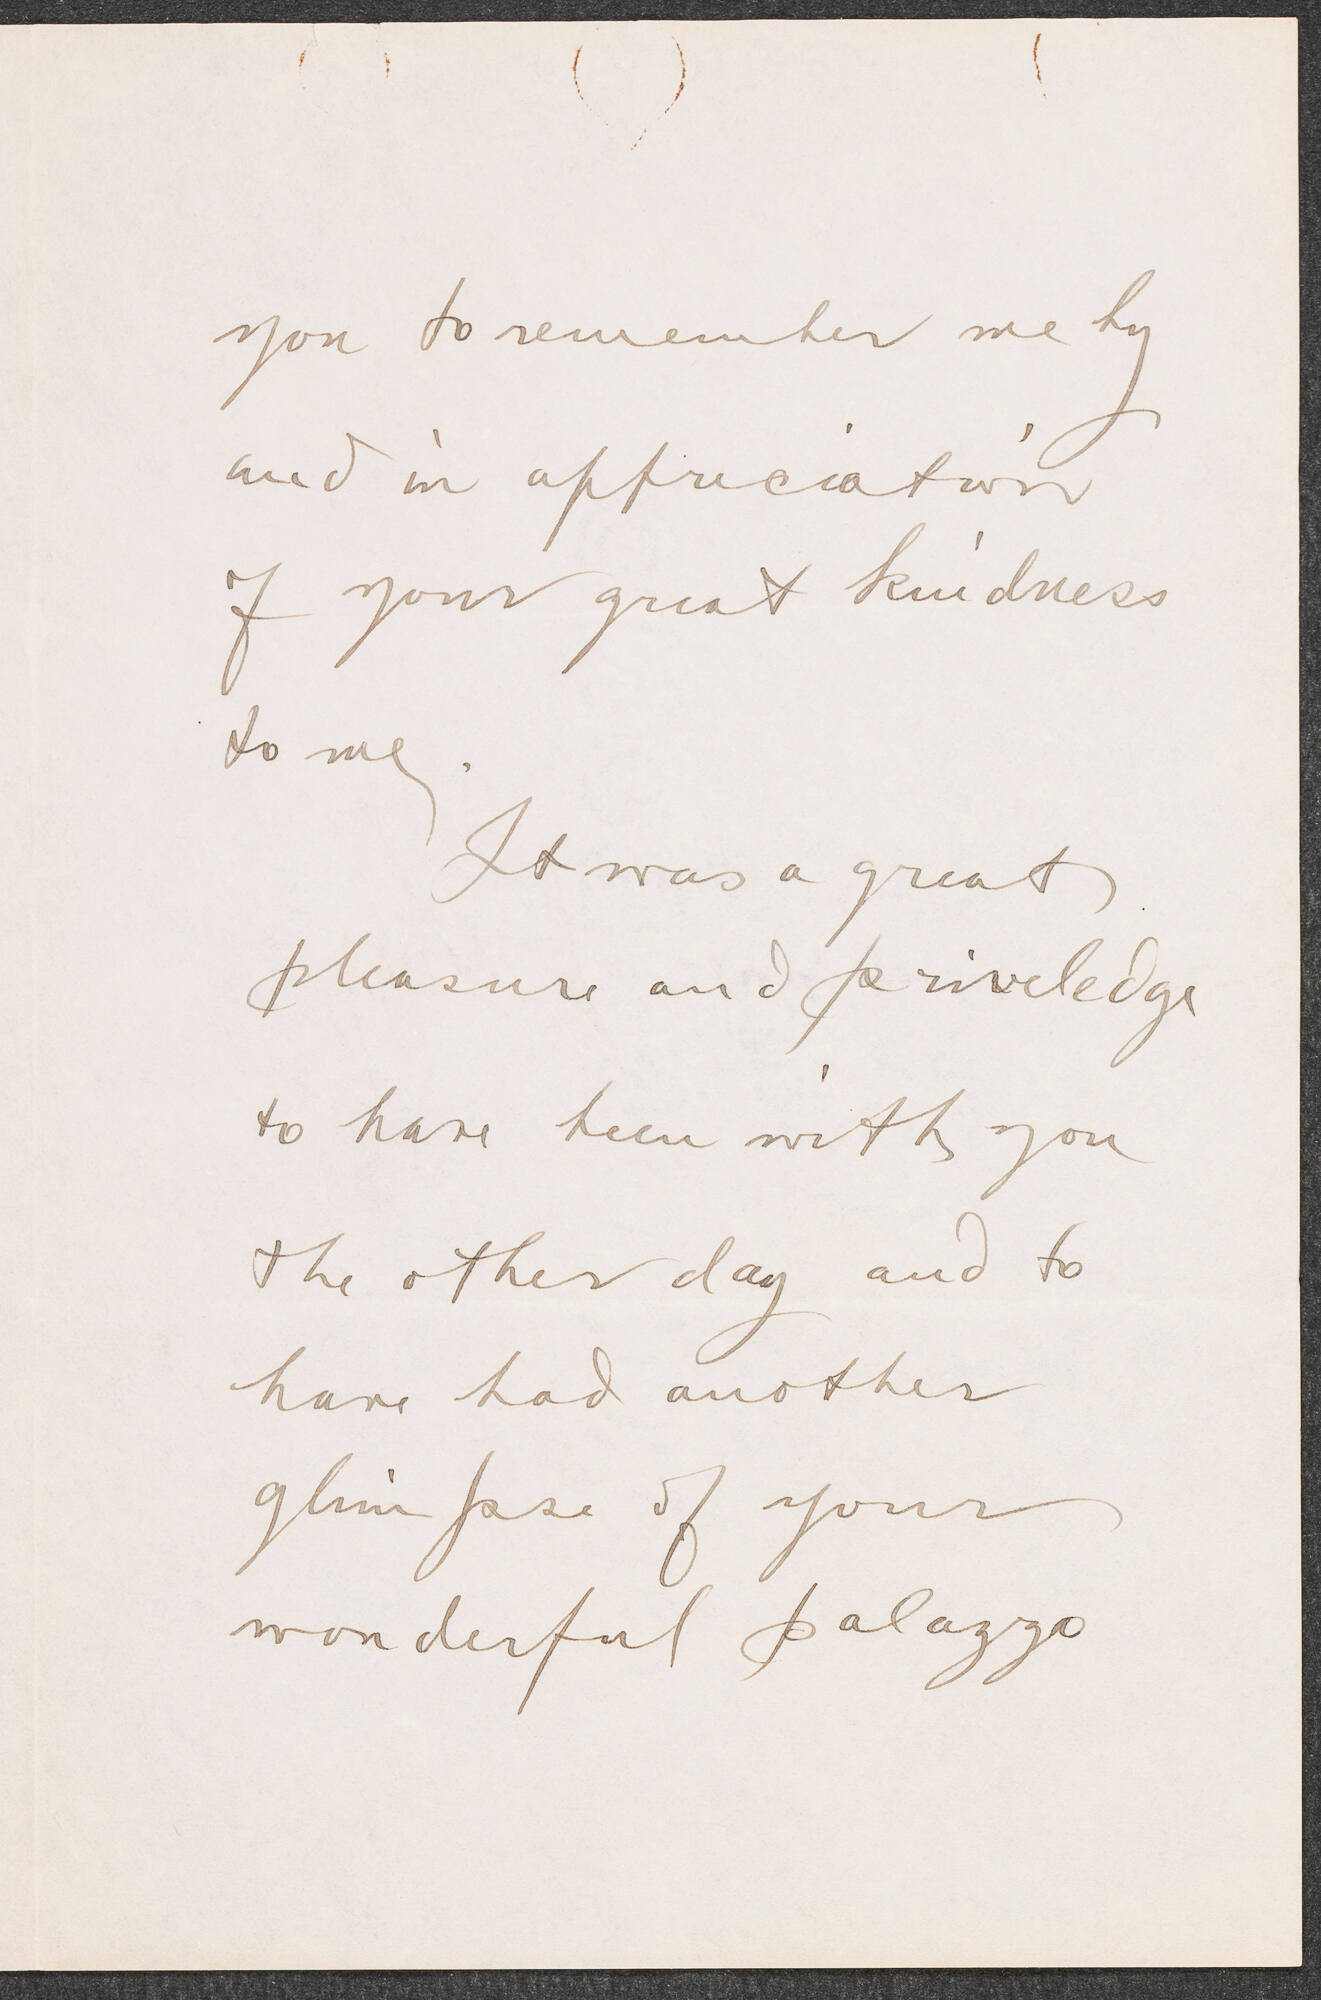 you to remember me by
and in appreciation
of your great kindness
to me.
It was a great
pleasure and priveledge
to have been with you
the other day and to
have had another
glimpse of your
wonderful palazzo